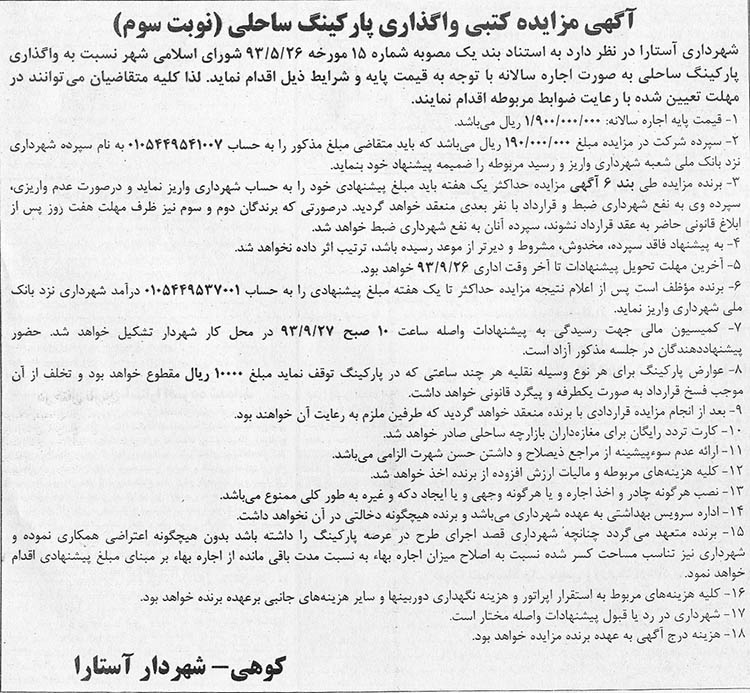 آگهی مزایده کتبی واگذاری پارکینگ ساحلی (نوبت سوم)
شهرداری آستارا در نظر دارد به استناد بند یک مصوبه شماره ۱۵ مورخه ۹۳/۵/۲۶ شورای اسلامی شهر نسبت به واگذاری
پارکینگ ساحلی به صورت اجاره سالانه با توجه به قیمت پایه و شرایط ذیل اقدام نماید. لذا کلیه متقاضیان می‌توانند در
مهلت تعیین شده با رعایت ضوابط مربوطه اقدام نمایند.
۱- قیمت پایه اجاره سالانه: ۱/۹۰۰/۰۰۰/۰۰۰ ریال می‌باشد.
۲- سپرده شرکت در مزایده مبلغ ۱۹۰/۰۰۰/۰۰۰ ریال می‌باشد که باید متقاضی مبلغ مذکور را به حساب ۰۱۰۵۴۴۹۵۴۱۰۰۷ به نام سپرده شهرداری
نزد بانک ملی شعبه شهرداری واریز و رسید مربوطه را ضمیمه پیشنهاد خود بنماید.
۳- برنده مزایده طی بند ۶ آگهی مزایده حداکثر یک هفته باید مبلغ پیشنهادی خود را به حساب شهرداری واریز نماید و درصورت عدم واریزی،
سپرده وی به نفع شهرداری ضبط و قرارداد با نفر بعدی منعقد خواهد گردید. درصورتی که برندگان دوم و سوم نیز ظرف مهلت هفت روز پس از
ابلاغ قانونی حاضر به عقد قرارداد نشوند، سپرده آنان به نفع شهرداری ضبط خواهد شد.
۴- به پیشنهاد فاقد سپرده، مخدوش، مشروط و دیرتر از موعد رسیده باشد، ترتیب اثر داده نخواهد شد.
۵- آخرین مهلت تحویل پیشنهادات تا آخر وقت اداری ۹۳/۹/۲۶ خواهد بود.
۶- برنده مؤظف است پس از اعلام نتیجه مزایده حداکثر تا یک هفته مبلغ پیشنهادی را به حساب ۰۱۰۵۴۴۹۵۳۷۰۰۱ درآمد شهرداری نزد بانک
ملی شهرداری واریز نماید.
۷- کمیسیون مالی جهت رسیدگی به پیشنهادات واصله ساعت ۱۰ صبح ۹۳/۹/۲۷ در محل کار شهردار تشکیل خواهد شد. حضور
پیشنهاددهندگان در جلسه مذکور آزاد است.
۸- عوارض پارکینگ برای هر نوع وسیله نقلیه هر چند ساعتی که در پارکینگ توقف نماید مبلغ ۱۰۰۰۰ ریال مقطوع خواهد بود و تخلف از آن
موجب فسخ قرارداد به صورت یکطرفه و پیگرد قانونی خواهد داشت.
۹- بعد از انجام مزایده قراردادی با برنده منعقد خواهد گردید که طرفین ملزم به رعایت آن خواهند بود.
۱۰- کارت تردد رایگان برای مغازه‌داران بازارچه ساحلی صادر خواهد شد.
۱۱- ارائه عدم سوءپیشینه از مراجع ذیصلاح و داشتن حسن شهرت الزامی می‌باشد.
۱۲- کلیه هزینه‌های مربوطه و مالیات ارزش افزوده از برنده اخذ خواهد شد.
۱۳- نصب هرگونه چادر و اخذ اجاره و یا هرگونه وجهی و یا ایجاد دکه و غیره به طور کلی ممنوع می‌باشد.
۱۴- اداره سرویس بهداشتی به عهده شهرداری می‌باشد و برنده هیچگونه دخالتی در آن نخواهد داشت.
۱۵- برنده متعهد می‌گردد چنانچه شهرداری قصد اجرای طرح در عرصه پارکینگ را داشته باشد بدون هیچگونه اعتراضی همکاری نموده و
شهرداری نیز تناسب مساحت کسر شده نسبت به اصلاح میزان اجاره بهاء به نسبت مدت باقی مانده از اجاره بهاء بر مبنای مبلغ پیشنهادی اقدام
خواهد نمود.
۱۶- کلیه هزینه‌های مربوط به استقرار اپراتور و هزینه نگهداری دوربینها و سایر هزینه‌های جانبی برعهده برنده خواهد بود.
۱۷- شهرداری در رد یا قبول پیشنهادات واصله مختار است.
۱۸- هزینه درج آگهی به عهده برنده مزایده خواهد بود.
کوهی- شهردار آستارا